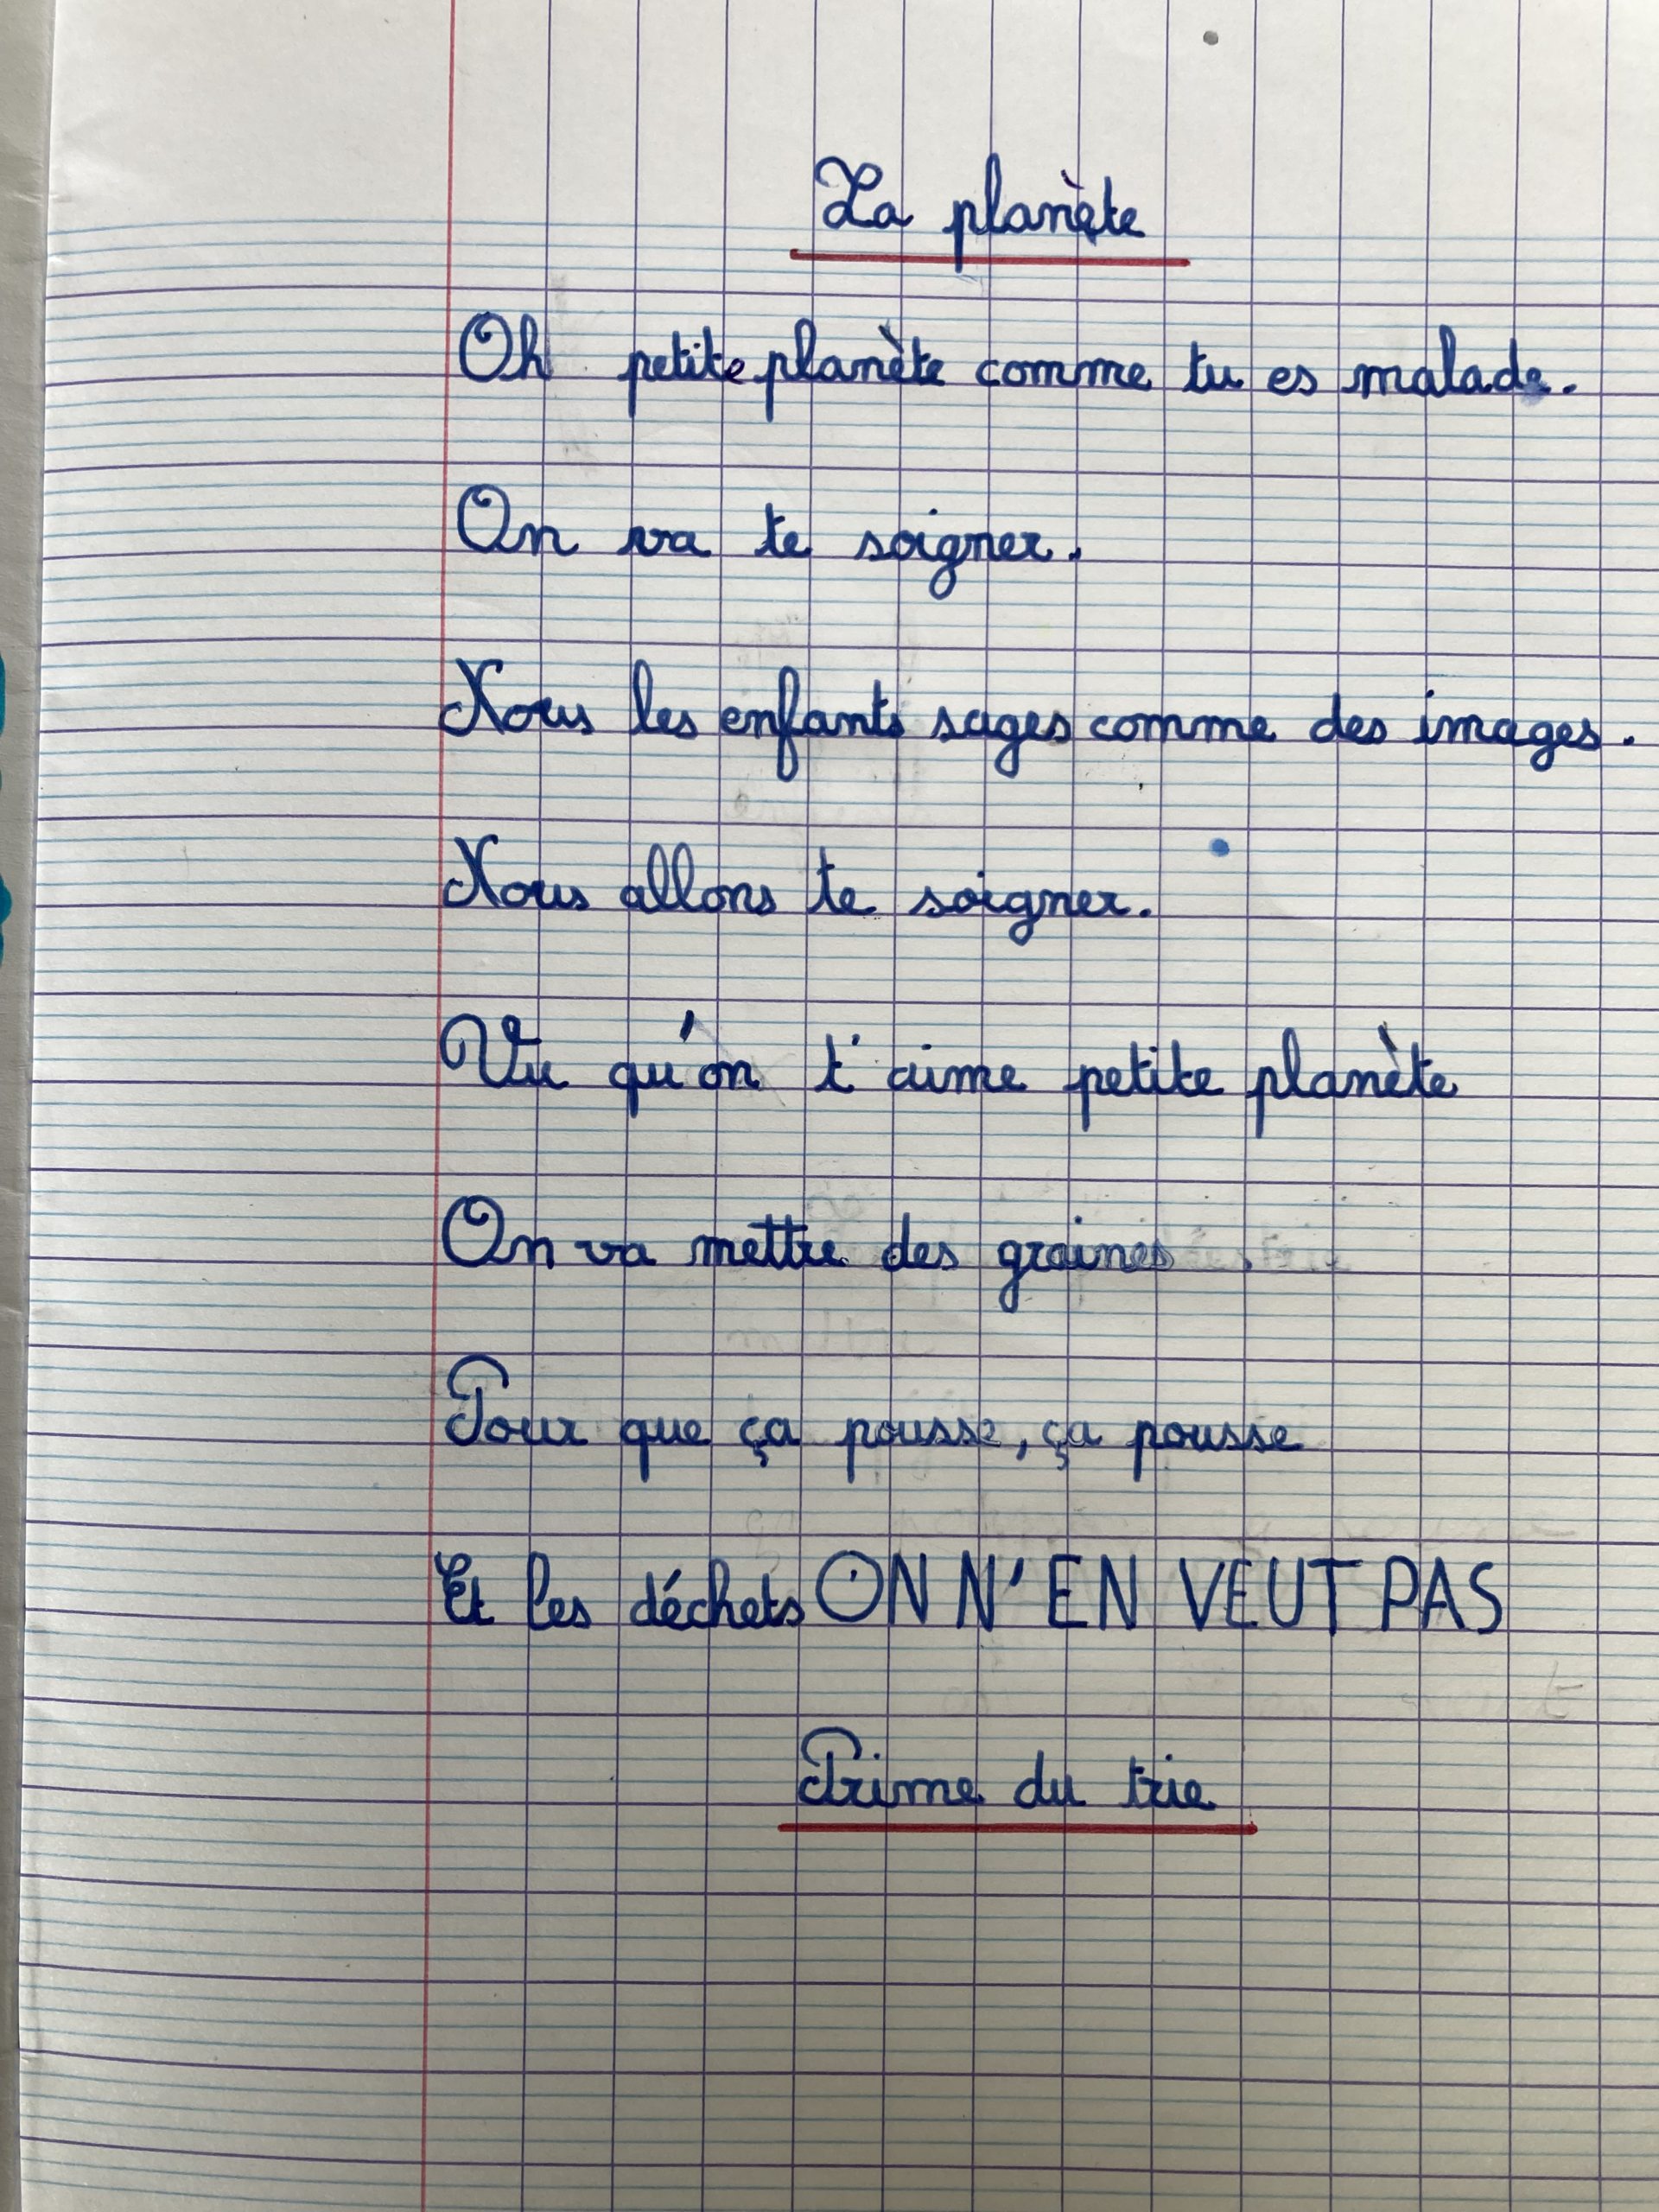 La planète
Oh petite planète comme tu es malade.
On va te soigner.
Nous les enfants sages comme des images.
Nous allons te soigner.
Vu qu'on t'aime petite planète
On va mettre des graines
Pour que ça pousse, ça pousse
Et les déchets ON N'EN VEUT PAS
Prime du trie